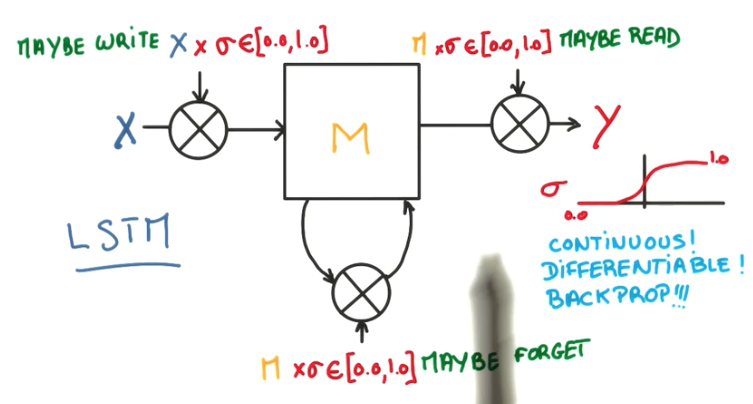 MAYBE WRITE X x σ ∈ [0.0, 1.0]
M x σ ∈ [0.0, 1.0] MAYBE READ
X
M
Y
σ
1.0
0.0
LSTM
CONTINUOUS!
DIFFERENTIABLE!
BACKPROP!!!
M x σ ∈ [0.0, 1.0] MAYBE FORGET